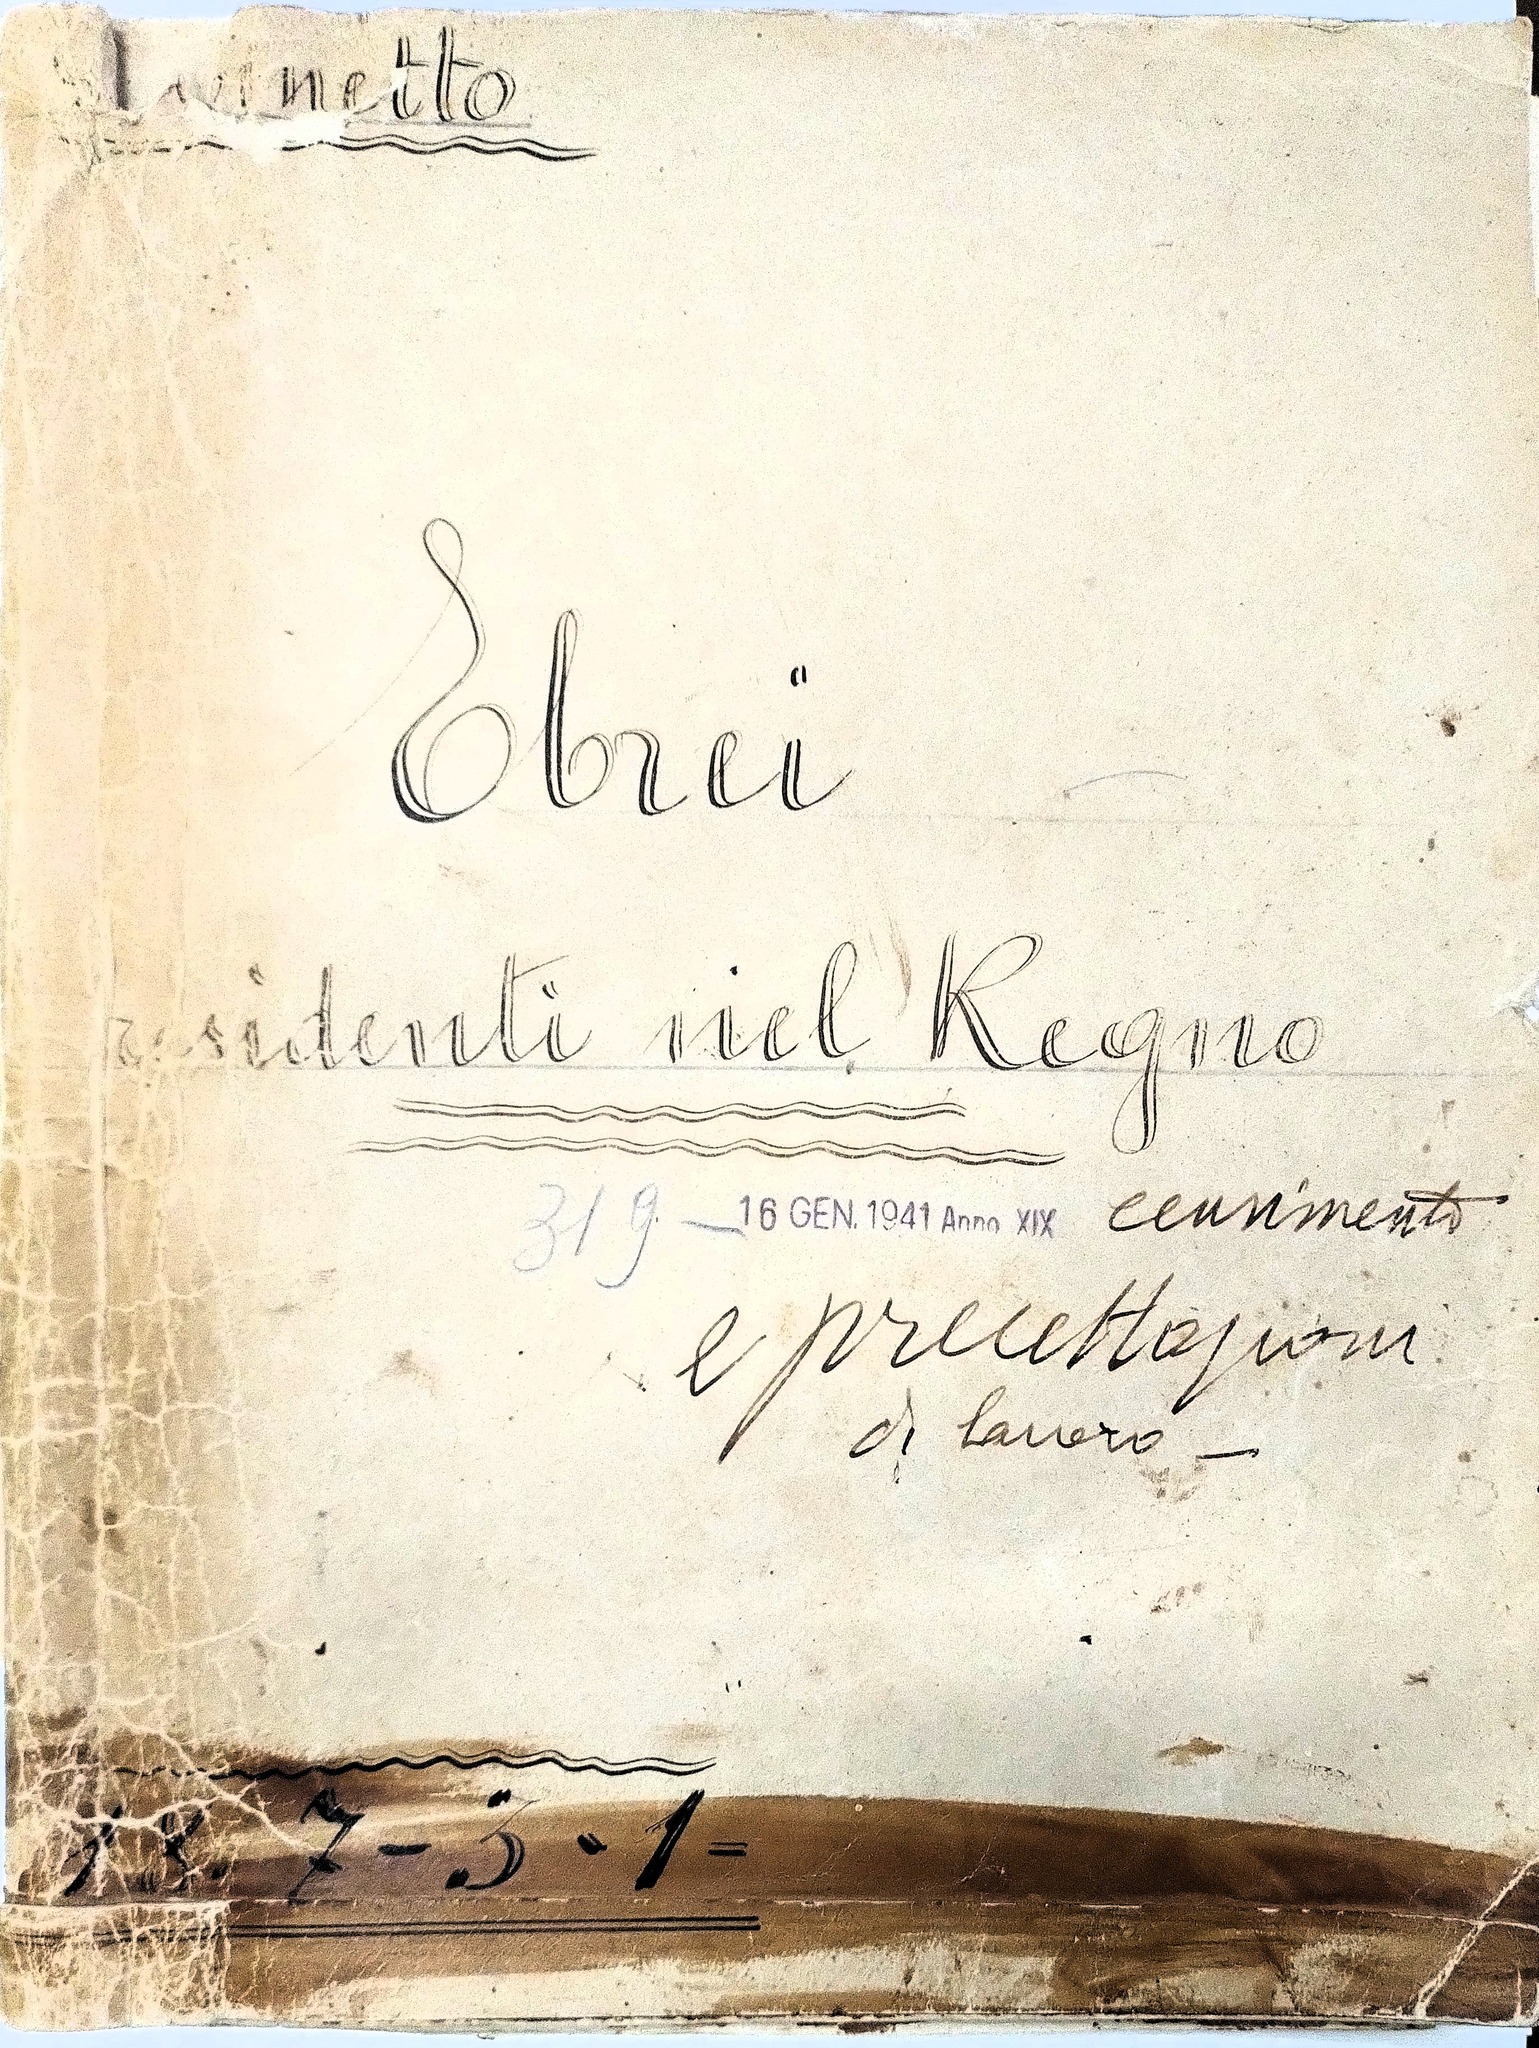 Ebrei
residenti nel Regno
319 — 16 GEN. 1941 Anno XIX censimento
e precettazioni
di lavoro —
13. 7 - 3 - 1 =